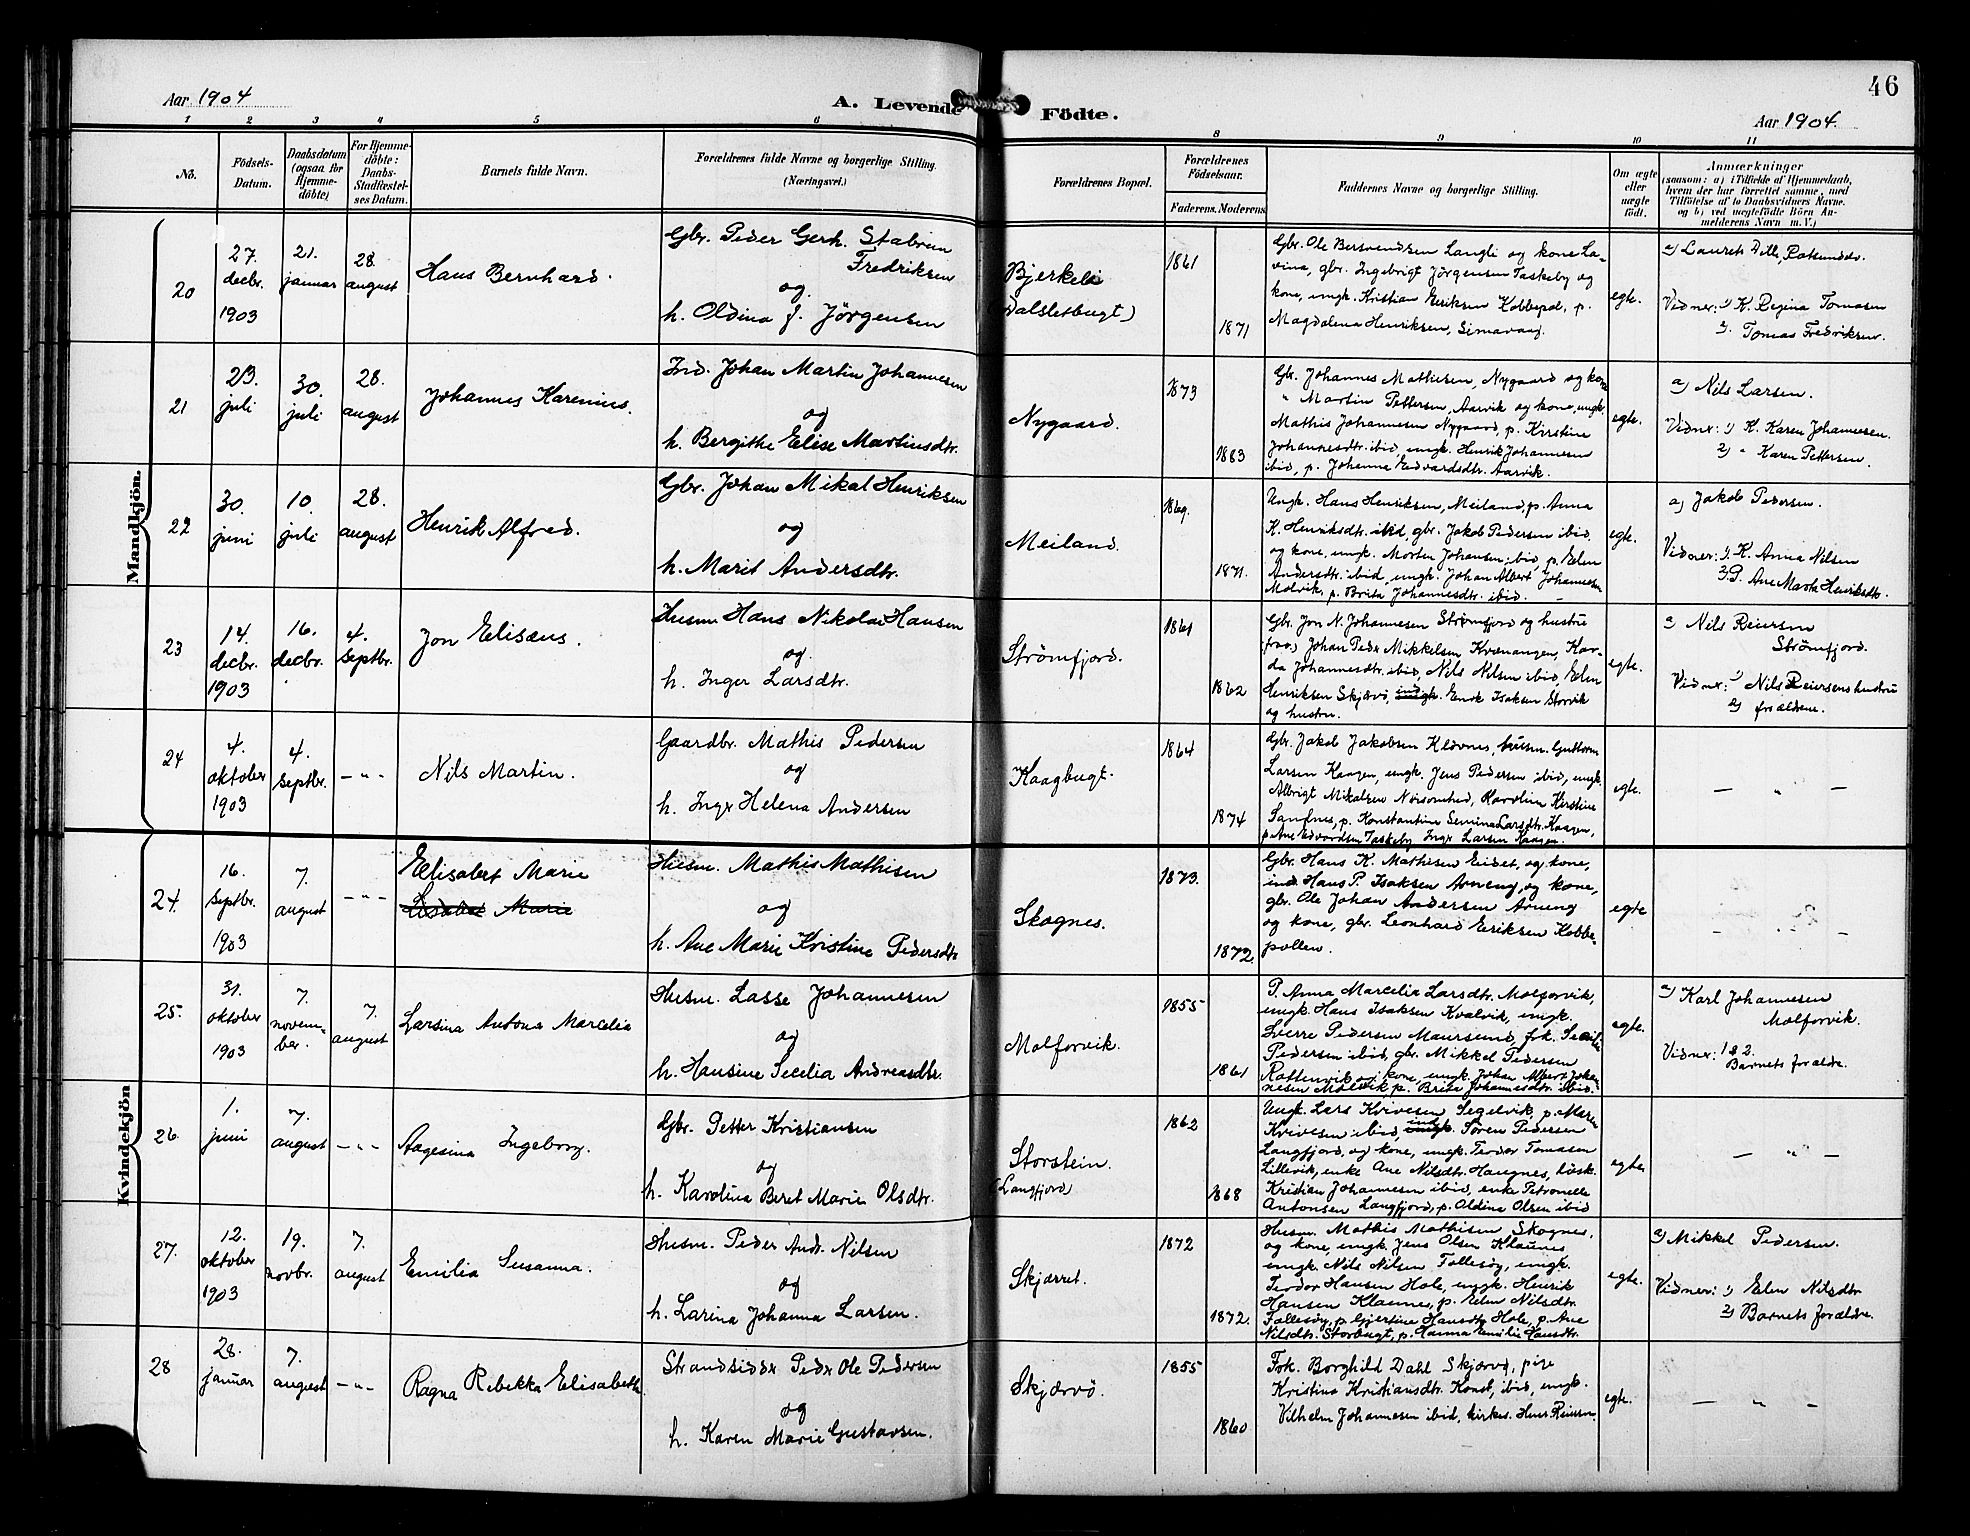 46
Aar 1904
A. Levende Födte.
Aar 1904.
1 2 3 4 5 6 8 9 10 11
No.
Födsels-
Datum.
Daabsdatum
(ogsaa for
Hjemme-
döbte)
For Hjemme-
döbte:
Daabs-
Stadfæstel-
ses Datum.
Barnets fulde Navn.
Forældrenes fulde Navne og borgerlige Stilling.
(Næringsvei.)
Forældrenes Bopæl.
Forældrenes
Födselsaar.
Faderens. Moderens.
Faddernes Navne og borgerlige Stilling.
Om ægte
eller
uægte
födt.
Anmærkninger
(saasom: a) i Tilfælde af Hjemmedaab,
hvem der har forrettet samme, med
Tilföielse af to Daabsvidners Navne.
og b) ved uægtefödte Börn An-
melderens Navn m.V.)
Mandkjön.
20
27.
decbr.
1903
21.
januar
28.
august
Hans Bernhard.
Gbr. Peder Gerh.
Fredriksen
og
h. Oldina f. Jörgensen
Bjerkeli
1861
1871
Gbr. Ole Berventsen Langli og kone La-
vina, gbr. Ingebrigt Jörgensen Taskeby og
kone, ungk. Kristian Eriksen Kobbepol, p.
Magdalena Henriksen, Simavaag.
egte.
Vidner: 1) K. Regina Tomasen
2. Tomas Fredriksen.
21
23.
juli
30.
juli
28.
august
Johannes Karenius.
Ind. Johan Martin Johannesen
og
h. Bergithe Elise Martinsdtr.
Nygaard.
1873
1883
Gbr. Johannes Mathisen, Nygaard og kone
" Martin Pettersen, Aarvik og kone, ungk.
Mathis Johannesen Nygaard, p. Kirstine
Johannesdtr. ibid, ungk. Henrik Johannesen
ibid, p. Johanna Edvardsdtr. Aarvik.
egte.
a) Nils Larsen.
Vidner: 1) K. Karen Johannesen.
2) " Karen Pettersen.
22
30.
juni
10.
juli
28.
august
Henrik Alfred.
Gbr. Johan Mikal Henriksen
og
h. Marit Andersdtr.
Meiland.
1869.
1871.
Ungk. Hans Henriksen, Meiland, p. Anna
K. Henriksdtr. ibid, gbr. Jakob Pedersen ibid
og kone, ungk. Morten Johansen ibid, p. Elen
Andersdtr. ibid, ungk. Johan Albert Johannesen
Molvik, p. Brita Johannesdtr. ibid.
egte.
a) Jakob Pedersen.
Vidner: 1) K. Anna Nilsen
2) P. Ane Marta Henriksdtr.
23
14.
decbr.
1903
16.
decbr.
4.
septbr.
Jon Elisæus.
Husm. Hans Nikolai Hansen
og
h. Inger Larsdtr.
Strömfjord.
1861
1862
Gbr. Jon N. Johannesen Strömfjord og hustru
Johan Peder Mikkelsen Kvænangen,
Johannesdtr. ibid, Nils Nilsen ibid, Elen
Henriksen Skjærvö, Isaksen Storvik
og hustru.
egte.
a) Nils Reiersen
Strömfjord.
Vidner: 1) Nils Reiersens hustru
2) forældrene.
24
4.
oktober
1903
4.
septbr.
— " —
Nils Martin.
Gaardbr. Mathis Pedersen
og
h. Inger Helena Andersen
Kaagbugt.
1864
1874
Gbr. Jakob Jakobsen Klövnes, husm. Guttorm
Larsen Kaagen, ungk. Jens Pedersen ibid, ungk.
Albrigt Mikalsen, Karolina Kirstine
Sandnes, p. Konstantine Semina Larsdtr. Kaagen,
p. Ane Edvardsen Taskeby Inger Larsen Kaagen.
egte.
— " —
Kvindekjön
24.
16.
septbr.
1903
7.
august
— " —
Elisabet Marie
Lisabet Marie
Husm. Mathis Mathisen
og
h. Ane Marie Kristine Pedersdtr
Skognes.
1873.
1872.
Gbr. Hans K. Mathisen Eidet, og kone,
ind. Hans P. Isaksen Arneng, og kone,
gbr. Ole Johan Andersen Arneng
og kone, gbr. Leonhard Eriksen Kobbe-
pollen.
egte
25.
31.
oktober
1903
7.
novem-
ber.
7.
august
Larsina Antona Marcelia
Husm. Lasse Johannesen
og
h. Hansine Secelia Andreasdtr.
Molforvik.
1855
1861
P. Anna Marcelia Larsdtr. Molforvik,
ungk. Hans Isaksen Kvalvik, ungk.
Sverre Pedersen Maursund, frk.
Pedersen ibid, gbr. Mikkel Pedersen
Rottenvik og kone, ungk. Johan Albert Johan-
nesen Molvik p. Brita Johannesdtr. ibid.
egte.
a) Karl Johannesen
Molforvik.
Vidner: 1 & 2.
Barnets forældre.
26.
1.
juni
7.
august
— " —
Aagesina Ingeborg.
Gbr. Petter Kristiansen
og
h. Karolina Beret Marie Olsdtr.
Storstein.
(Langfjord)
1862
1868
Ungk. Lars Kvivesen Segelvik, p. Maren
Kvivesen ibid, ind. ungk. Sören Pedersen
Langfjord, og kone, ungk. Teodor Tomasen
Lillevik, enke Ane Nilsdtr. Haugnes, lösk.
Kristian Johannesen ibid, enke Petronelle
Antonsen Langfjord, p. Oldine Olsen ibid
egte.
— " —
27.
12.
oktober
1903
19.
novbr.
7.
august
Emilia Susanna.
Husm. Peder Andr. Nilsen
og
h. Larina Johanna Larsen.
Skjærret.
1872
1872.
Husm. Mathis Mathisen Skognes,
og kone, ungk. Jens Olsen Klaunes
ungk. Nils Nilsen Follesöy, ungk.
Teodor Hansen Hole, ungk. Henrik
Hansen Klaunes, p. Elen Nilsdtr.
Follesöy, p. Gjertine Hansdtr Hole, p. Ane
Nilsdtr. Storbugt, p. Hanna Emilie Hansdtr.
egte.
a) Mikkel Pedersen.
Vidner: 1) Elen Nilsdtr
2) Barnets forældre.
28
28.
januar
7.
august
— " —
Ragna Rebekka Elisabeth.
Strandsidder Peder Ole Pedersen
og
h. Karen Marie Gustavsen.
Skjærvö.
1855
1860
Frk. Borghild Dahl Skjærvö, pige
Kristina Kristiansdtr. Konst, ibid, ungk.
Vilhelm Johannesen ibid, kirkes. Hans Reiersen
egte.
— " —